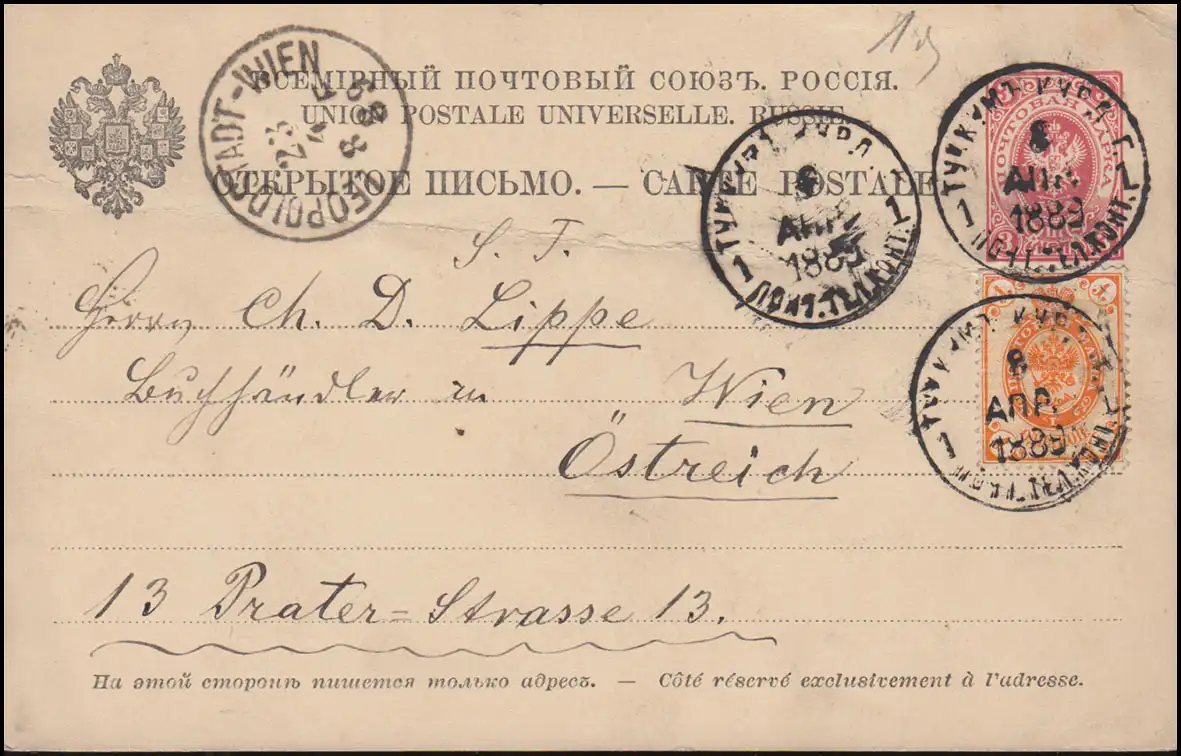 ВСЕМІРНЫЙ ПОЧТОВЫЙ СОЮЗЪ. РОССІЯ.
UNION POSTALE UNIVERSELLE. RUSSIE.
ОТКРЫТОЕ ПИСЬМО. — CARTE POSTALE
LEOPOLDSTADT-WIEN
23 4
89
8
8
АПР.
1889
1 1
ПОЧТОВАЯ МАРКА
8
АПР.
1889
1 1
8
АПР.
1889
1 1
S. T.
Herrn Ch. D. Lippe
Buchhändler in Wien
Östreich
13 Prater=Strasse 13.
На этой сторонѣ пишется только адресъ. — Côté réservé exclusivement à l'adresse.